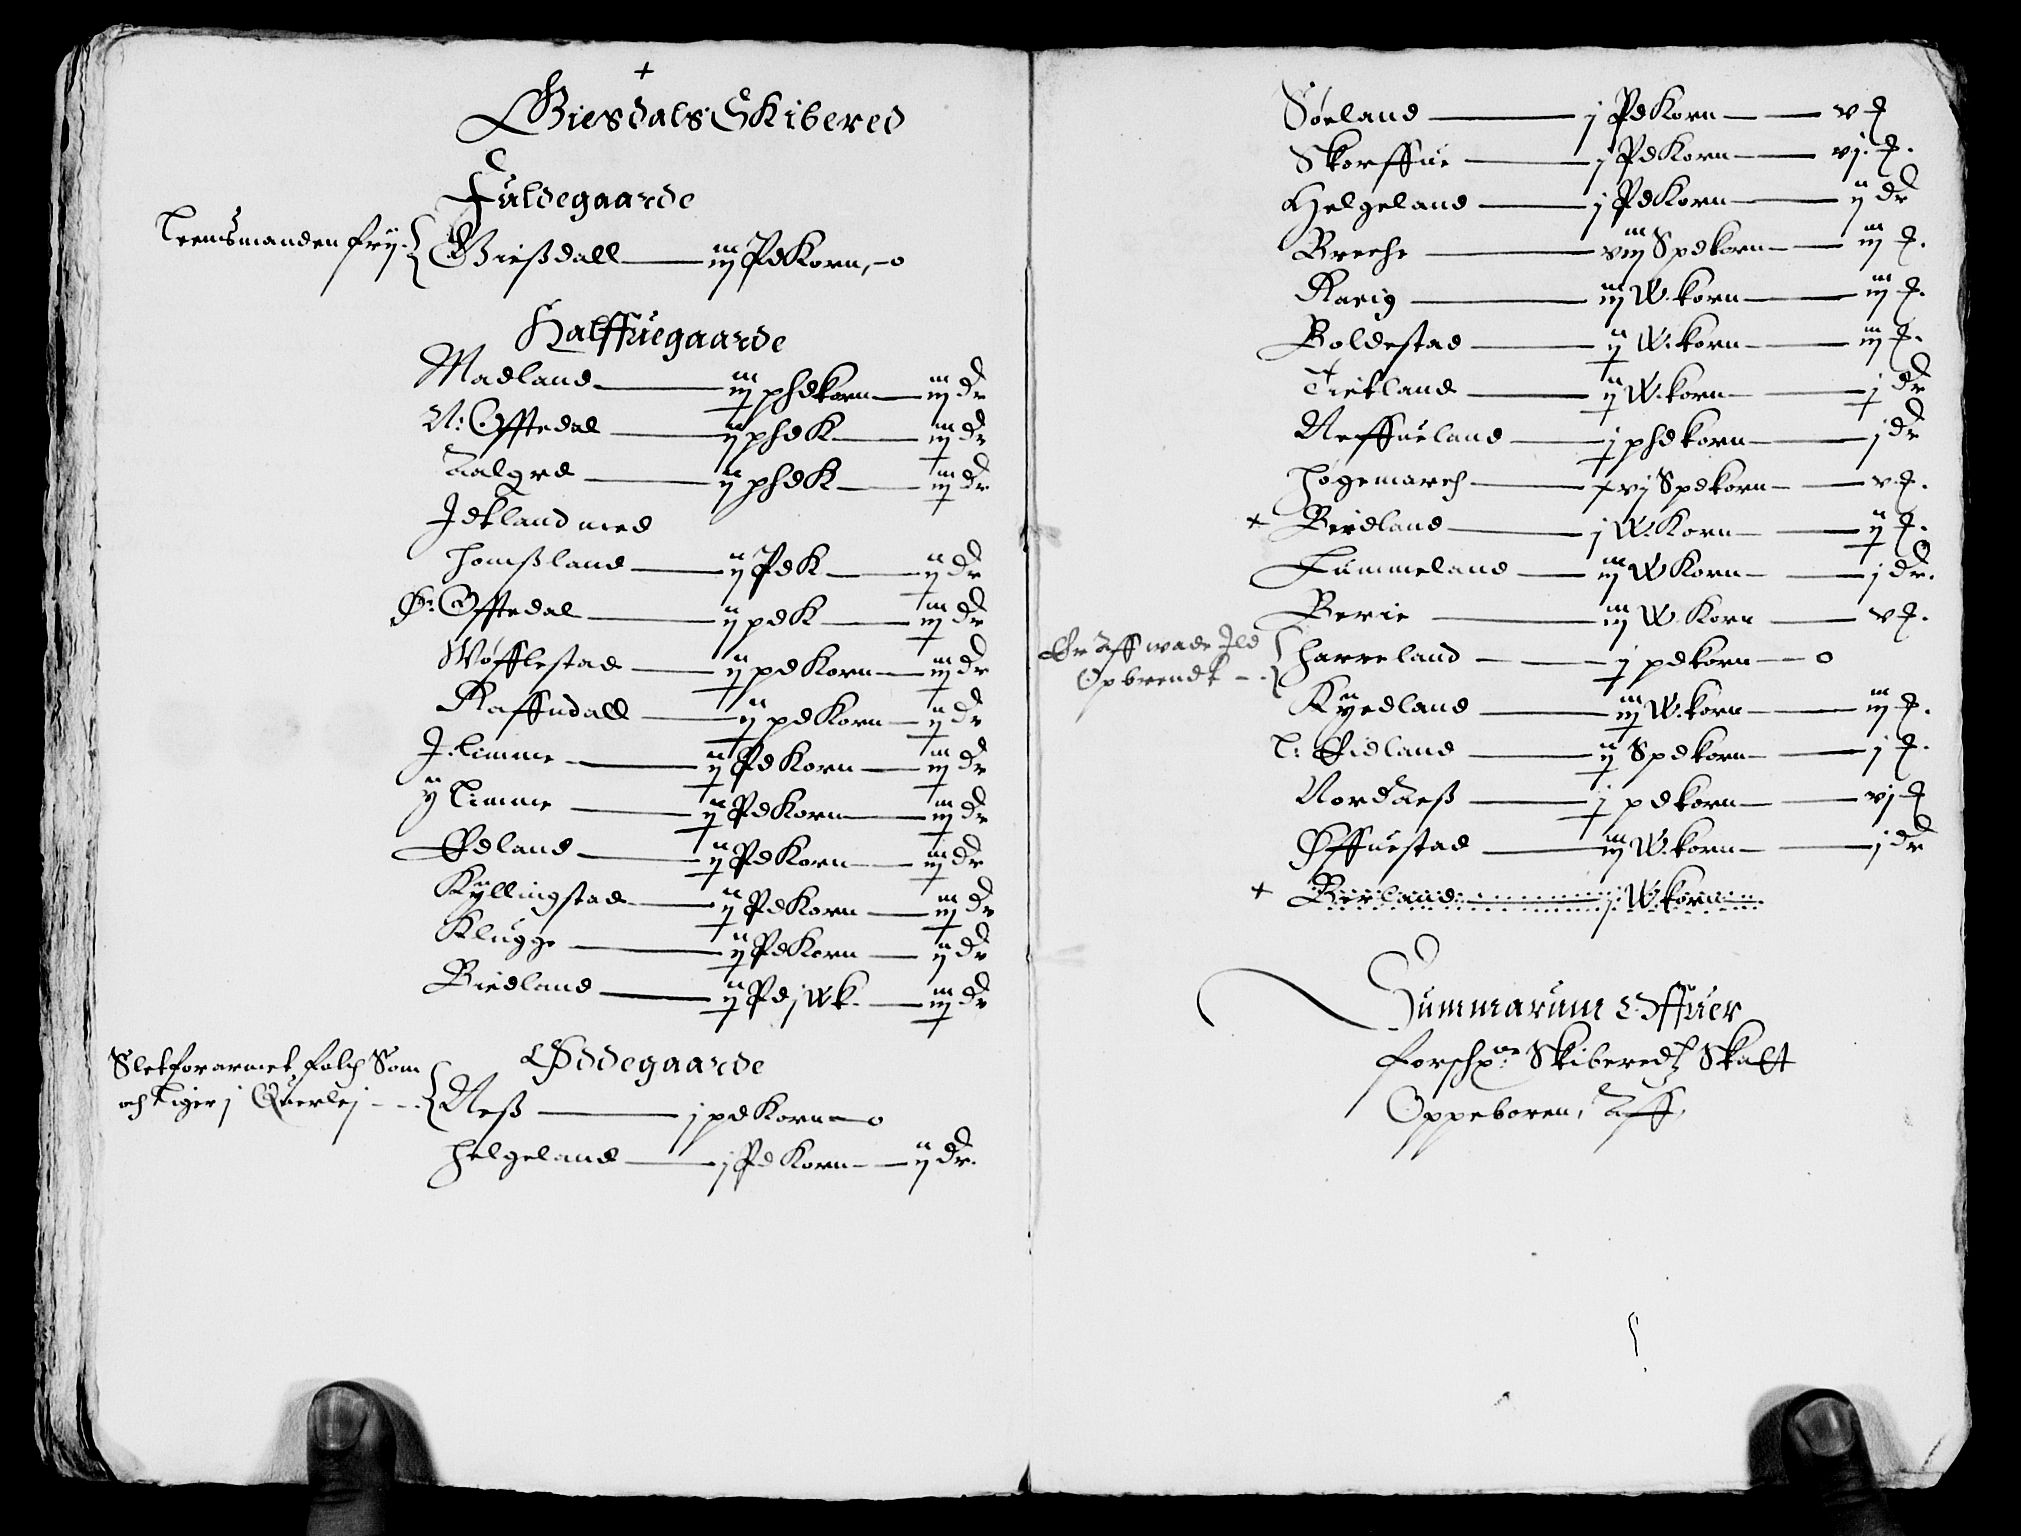 +
Giesdals Skibered
Fuldegaarde
Leensmanden frij. { Gießdall — iij Pd Korn, — o
Halffuegaarde
Madland — iij phd korn — iij dr
N: Offtedal — ij phd K — iij dr
Aalgrd — ij phd K — iij dr
Jdkland med
Homßland — ij Pd K — ij dr
Ø: Offtedal — ij pd K — iij dr
Wøfflestad — ij pd Korn — iij dr
Raffndall — ij pd Korn — ij dr
J. Limme — ij Pd Korn — iij dr
ÿ Limme — ij Pd Korn — iij dr
Edland — ij Pd Korn — iij dr
Kyllingstad — ij Pd Korn — iij dr
Klugge — ij Pd Korn — ij dr
Biedland — ij Pd j W k. — iij dr
Øddegaarde
Slet forarmet folch Som
och Liger j Querlej — { Neß — j pd Korn — o
Helgeland — j Pd Korn — ij dr.
Søeland — j Pd Korn — v
Skorffue — j Pd Korn — vj.
Helgeland — j Pd Korn — ij dr
Breche — viij Spd korn — iij
Raeig — iij W. korn — iij
Boldestad — ij W. korn — iij
Tietland — ij W. korn — j dr
Neffueland — j phd korn — j dr
Høgemarch — xvj Spd korn — v
+ Birdland — j W. Korn — ij
Lummeland — iij W Korn — j dr.
Berie — iij W Korn — v
Er Aff wade Jld
Opbrendt — { Harreland — j pd korn — o
Kyedland — iij W. korn — iij
L: Eidland — ij Spd korn — j
Nordaaß — j pd korn — vj
Øffuestad — iij W. korn — j dr
+ Birland — j W. korn
Summarum Offuer
forschne Skiberedz Skatt
Oppeboren, Aff,